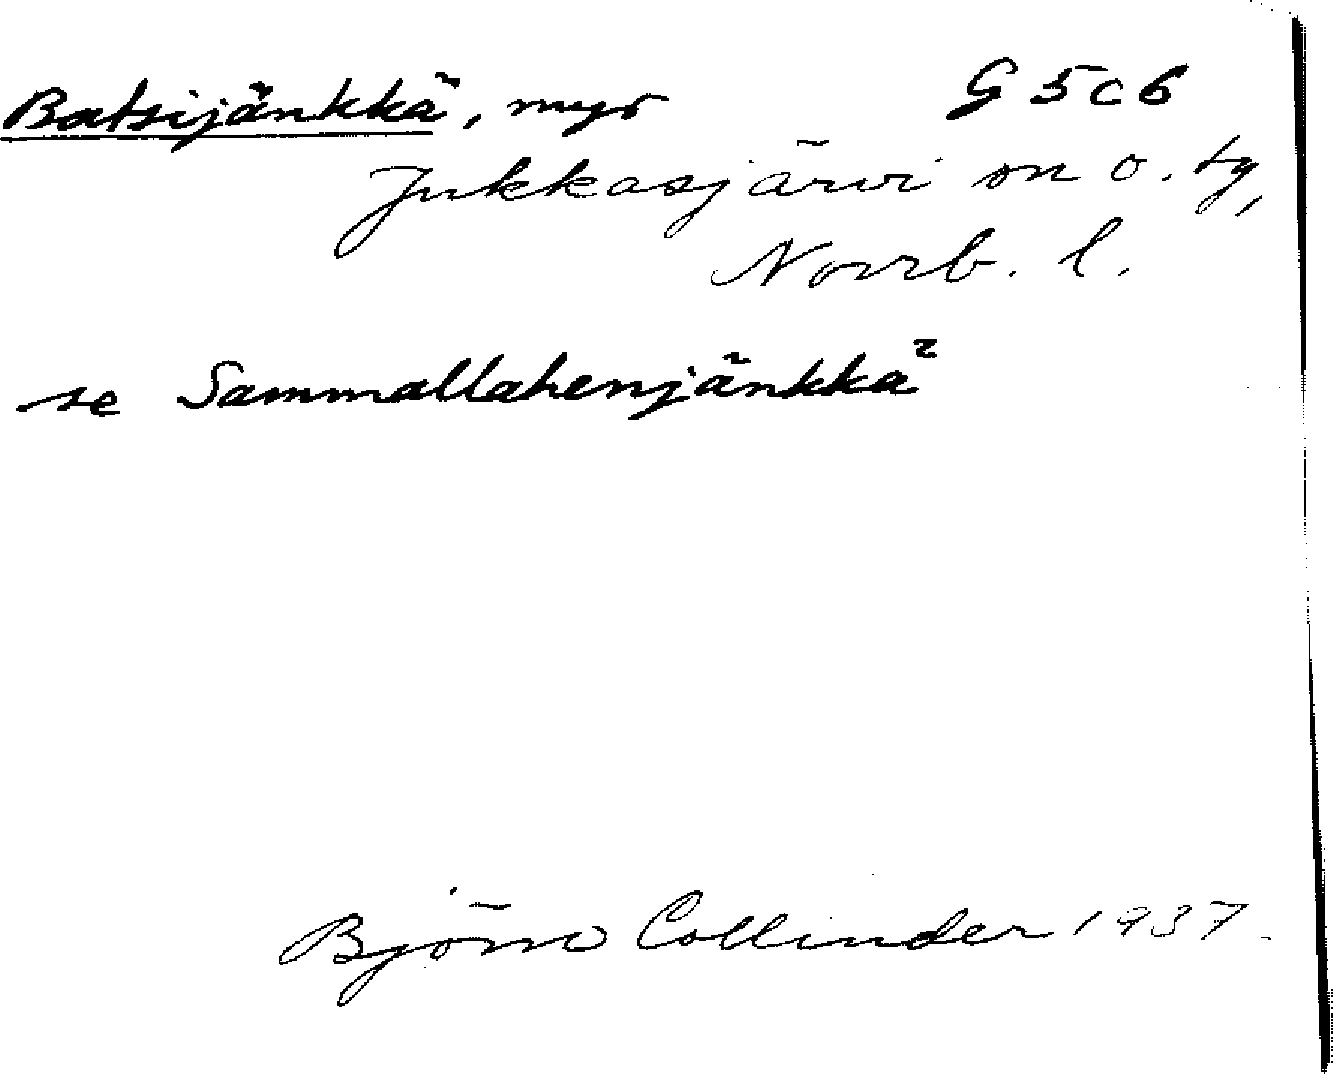 Batsijänkkä, myr G 5c6
Jukkasjärvi sn o. tg,
Norrb. l.
se Sammallahenjänkkä
Björn Collinder 1937.